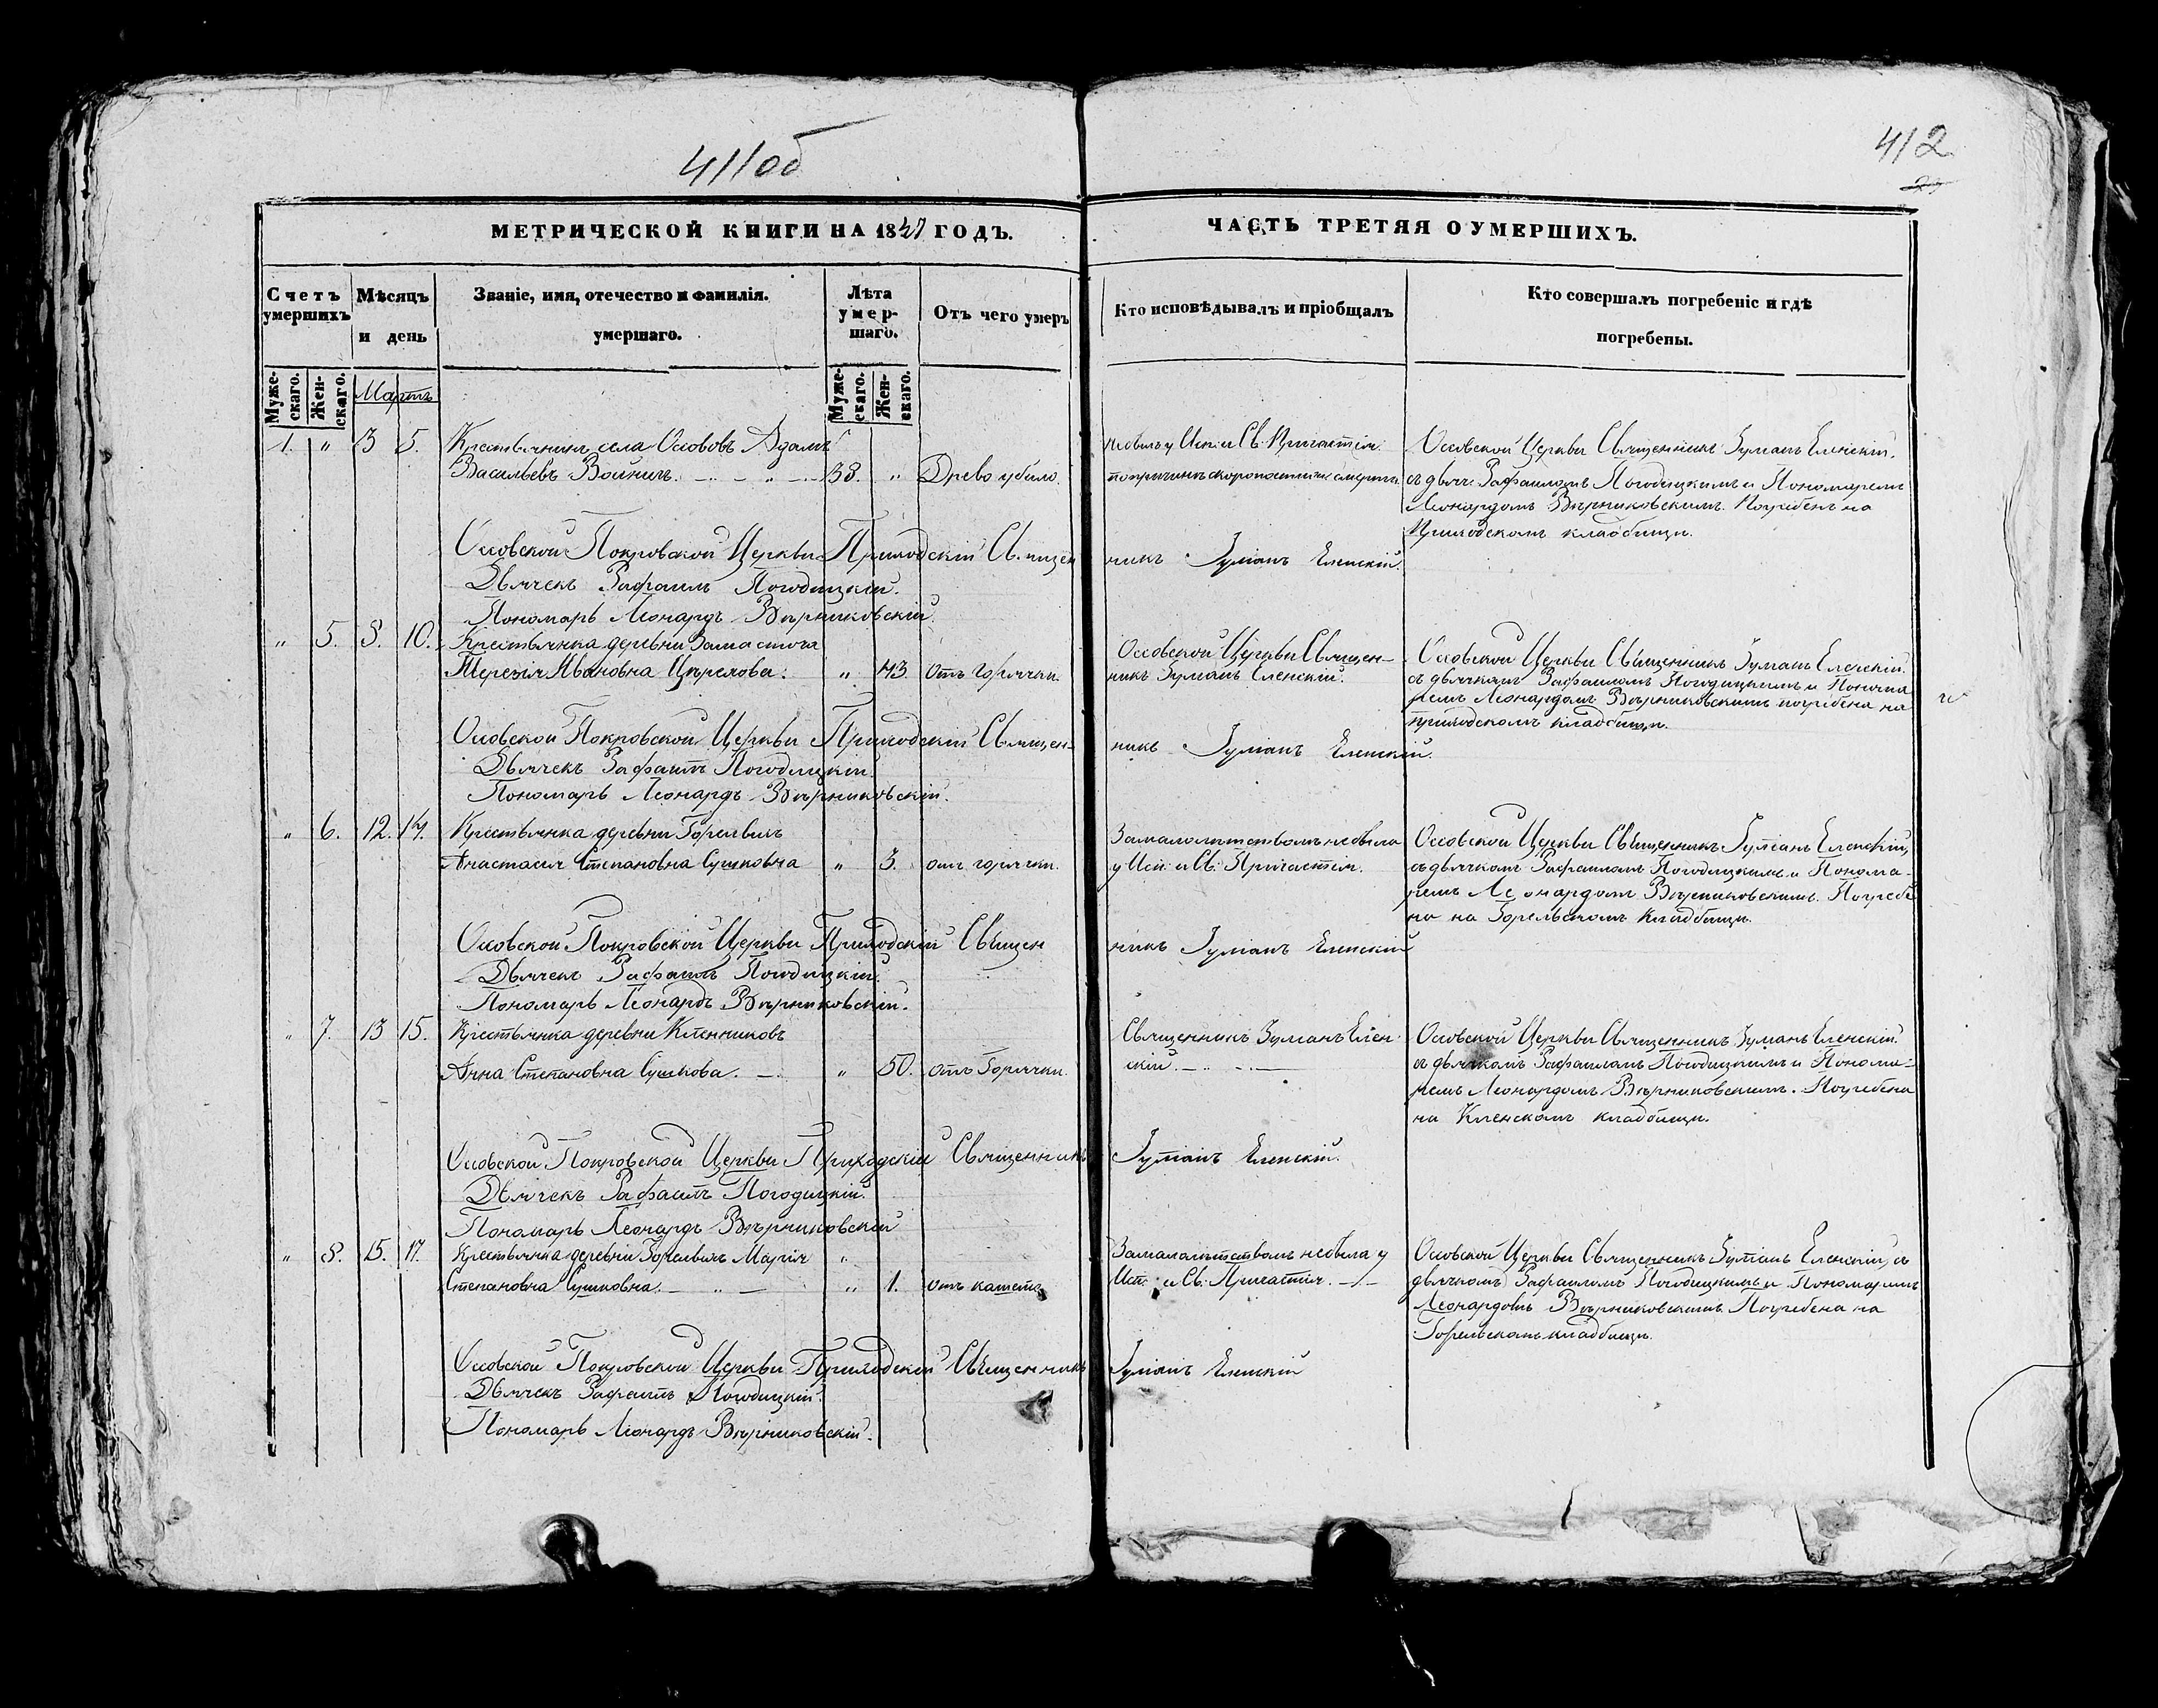 411об
412
МЕТРИЧЕСКОЙ КНИГИ НА 1847 ГОДЪ.
ЧАСТЬ ТРЕТЯЯ О УМЕРШИХЪ.
Счетъ умершихъ
Мѣсяцъ и день
Званіе, имя, отечество и фамилія.
умершаго.
Лѣта умер-
шаго.
Отъ чего умеръ
Кто исповѣдывалъ и пріобщалъ
Кто совершалъ погребеніе и гдѣ
погребены.
Муже-
скаго.
Жен-
скаго.
Мартъ
Муже-
скаго.
Жен-
скаго.
1. " 3 5. Крестьянинъ села Оссововъ Адамъ
Васильевъ Войничъ. 38. " Древо убило.
небылъ у Исп: и Св. Причастія
попричинѣ скоропостижн: смерти.
Оссовской Церкви Священникъ Іуліанъ Еленскій.
съ дьяч: Рафаиломъ Погодицкимъ и Пономаремъ
Леонардомъ Вѣрниковскимъ. Погребенъ на
Приходскомъ кладбищи.
Оссовской Покровской Церкви Приходскій Священ
никъ Іуліанъ Еленскій.
Дьячекъ Рафаилъ Погодицкій.
Пономарь Леонардъ Вѣрниковскій.
" 5. 8. 10. Крестьянка деревни Замасточа
Терезія Ивановна : " 43. Отъ горячки.
Оссовской Церкви Священ-
никъ Іуліанъ Еленскій.
Оссовской Церкви Священникъ Іуліанъ Еленскій.
съ дьячкомъ Рафаиломъ Погодицкимъ и Понома
ремъ Леонардомъ Вѣрниковскимъ погребена на
приходскомъ кладбищи.
Оссовской Покровской Церкви Приходскій Священ-
никъ Іуліанъ Еленскій.
Дьячекъ Рафаилъ Погодицкій.
Пономарь Леонардъ Вѣрниковскій.
" 6. 12. 14. Крестьянка деревни Горелвичъ
Анастасія Степановна Сушковна " 3. отъ горячки.
Замалолѣтствомъ небыла
у Исп: и Св. Причастія.
Оссовской Церкви Священникъ Іуліанъ Еленскій,
съ дьячкомъ Рафаиломъ Погодицкимъ и Понома-
ремъ Леонардомъ Вѣрниковскимъ. Погребе
на на Горельскомъ кладбищи.
Оссовской Покровской Церкви Приходскій Священ
никъ Іуліанъ Еленскій
Дьячекъ Рафаилъ Погодицкій.
Пономарь Леонардъ Вѣрниковскій.
" 7. 13 15. Крестьянка деревни Кленниковъ
Анна Степановна Сушкова. " 50. отъ Горячки.
Священникъ Іуліанъ Елен-
скій.
Оссовской Церкви Священникъ Іуліанъ Еленскій.
съ дьячкомъ Рафаиломъ Погодицкимъ и Понома-
ремъ Леонардомъ Вѣрниковскимъ. Погребена
на Кленскомъ кладбищи.
Оссовской Покровской Церкви Приходскій Священникъ
Іуліанъ Еленскій.
Дьячекъ Рафаилъ Погодицкій.
Пономарь Леонардъ Вѣрниковскій
" 8. 15. 17. Крестьянка деревни Горелвичъ Марія "
Степановна Сушковна. " 1. отъ кашеля
Замалолѣтствомъ небыла у
Исп: и Св. Причастія.
Оссовской Церкви Священникъ Іуліанъ Еленскій, съ
дьячкомъ Рафаиломъ Погодицкимъ и Пономаремъ
Леонардомъ Вѣрниковскимъ. Погребена на
Горельскомъ кладбищи.
Оссовской Покровской Церкви Приходскій Священникъ
Іуліанъ Еленскій
Дьячекъ Рафаилъ Погодицкій.
Пономарь Леонардъ Вѣрниковскій.